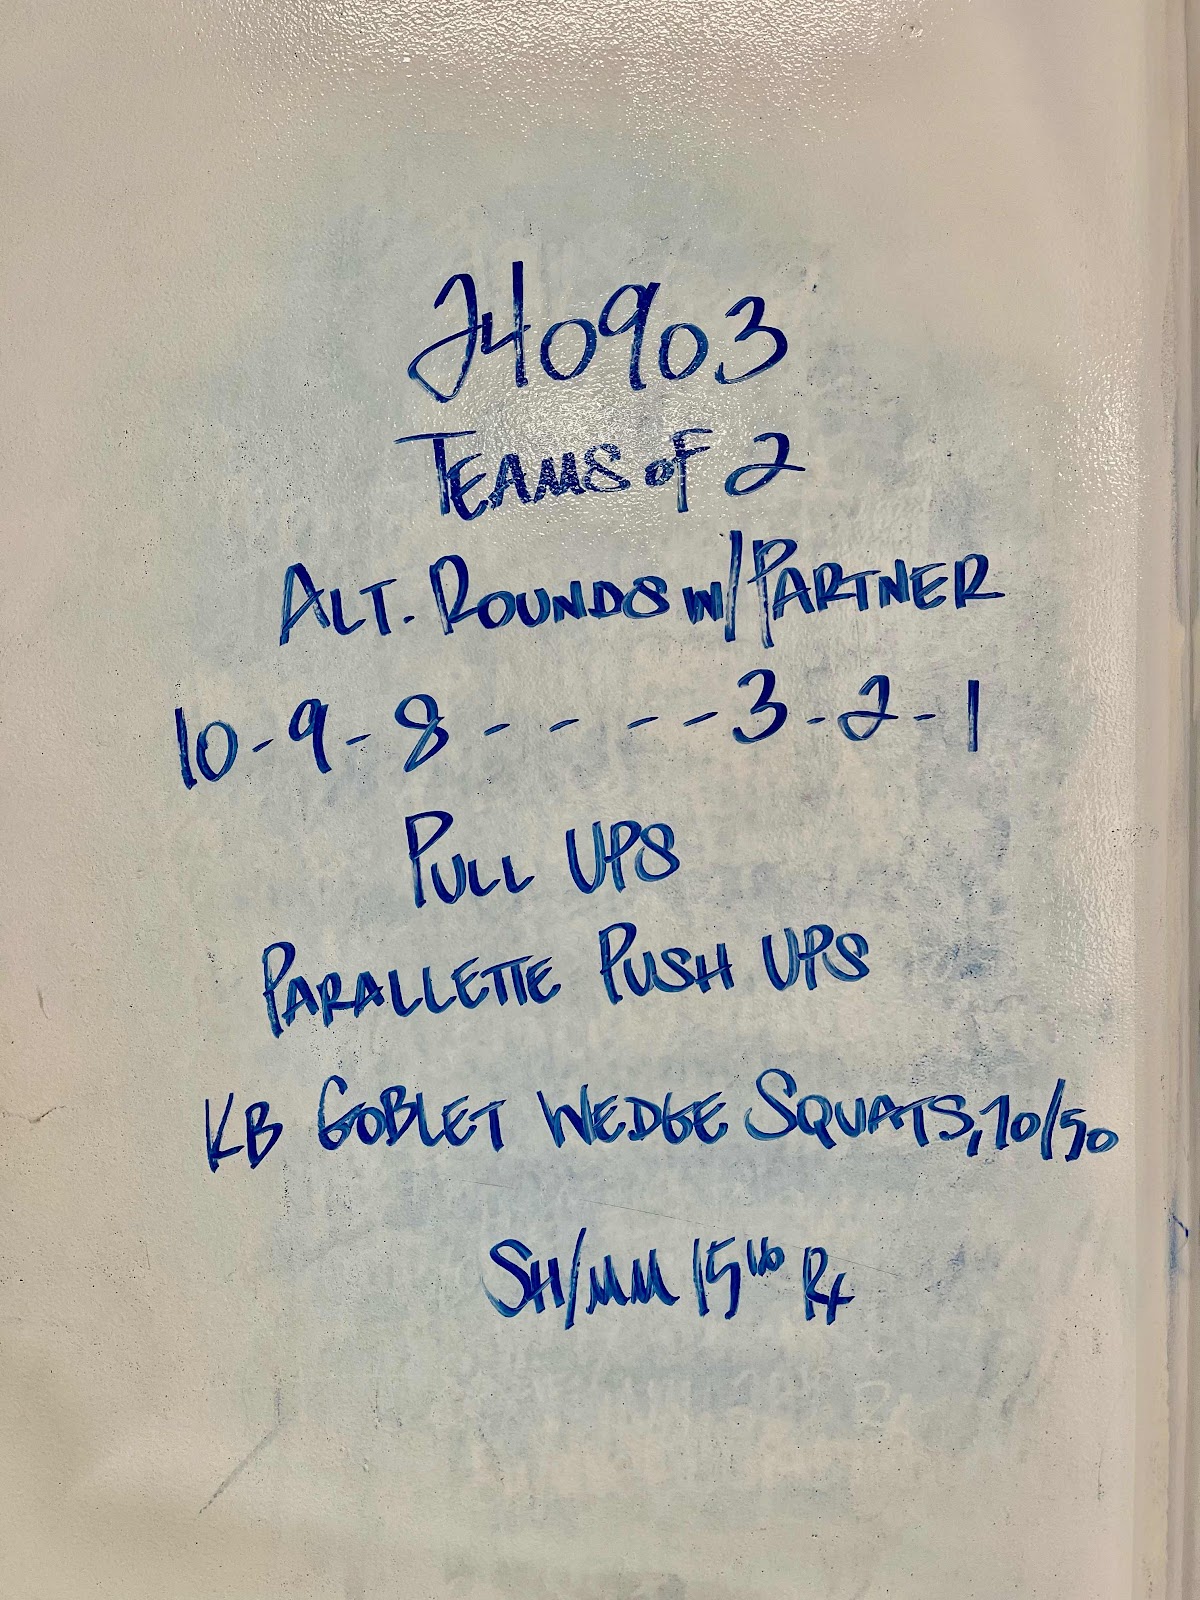 240903
TEAMS OF 2
ALT. ROUNDS W/PARTNER
10-9-8-----3-2-1
PULL UPS
PARALLETTE PUSH UPS
KB GOBLET WEDGE SQUATS, 70/50
SH/MM 15lb Rx